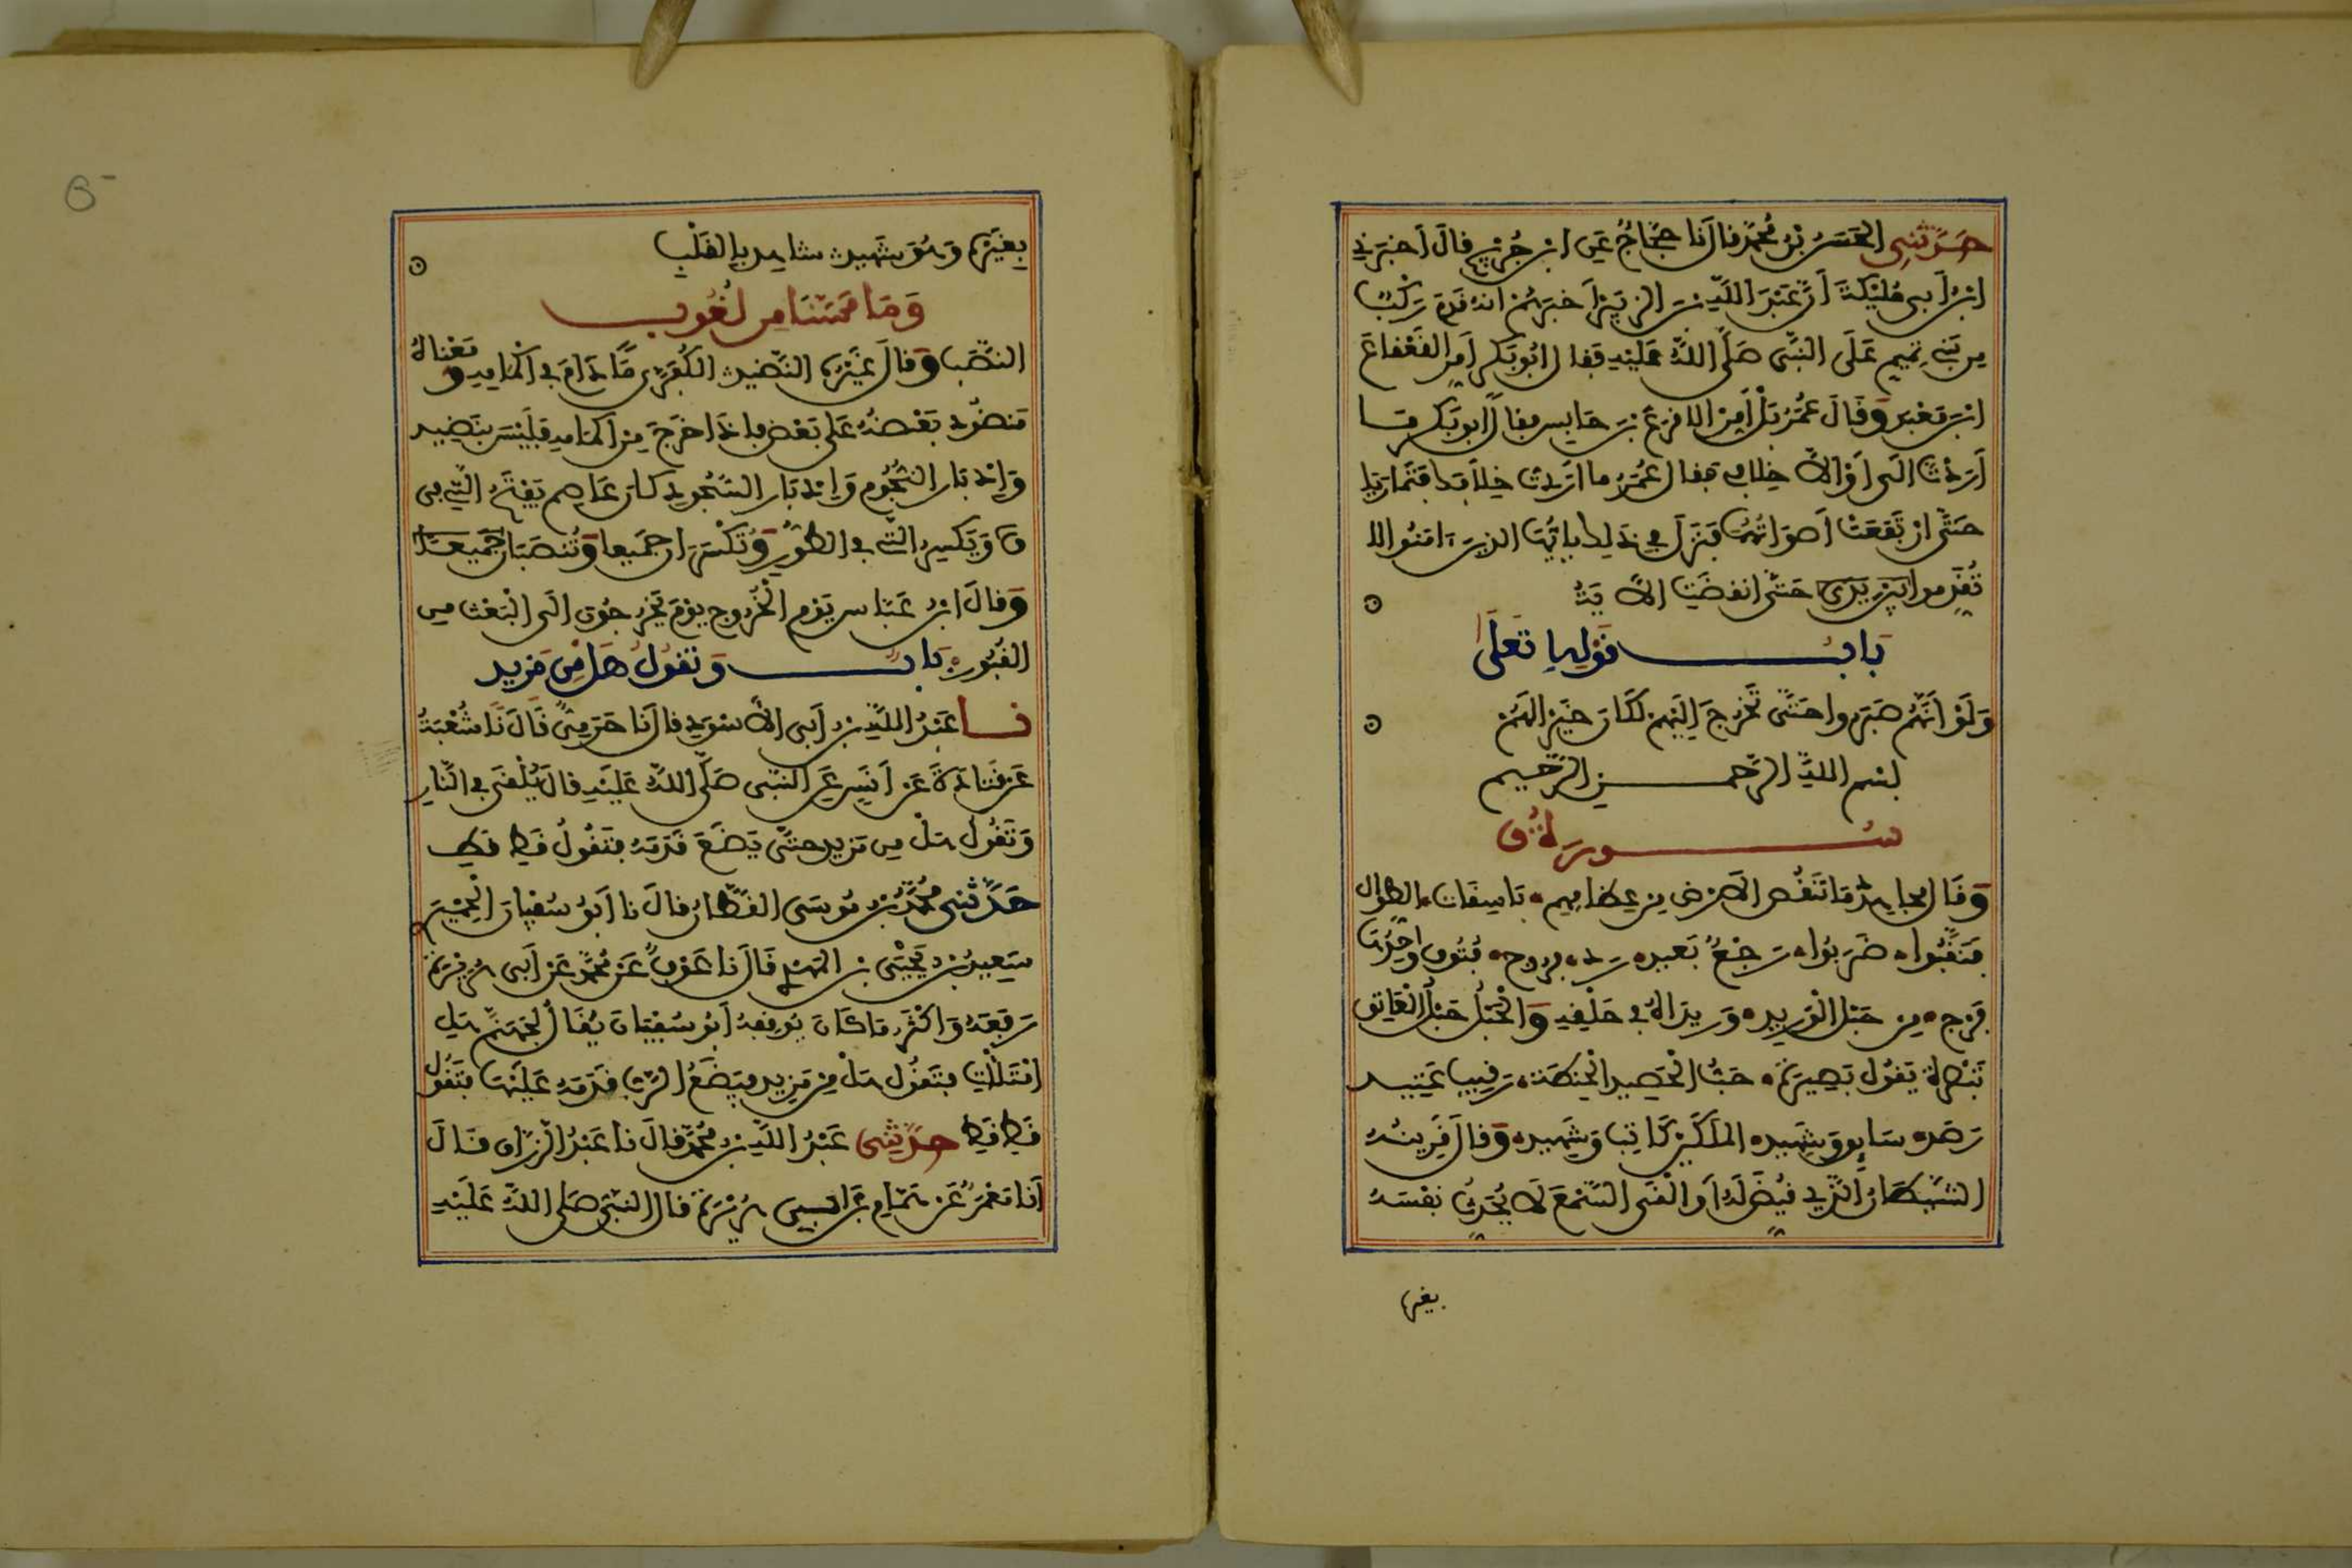 حدثني الحسن بن محمد قال نا حجاج عن ابن جريج قال اخبرني
ابن ابي مليكة ان عبد الله بن الزبير اخبرهم انه قدم ركب
من بني تميم على النبي صلى الله عليه فقال ابو بكر امر القعقاع
ابن معبد وقال عمر بل امر الاقرع بن حابس فقال ابو بكر ما
اردت الى او الا خلافي فقال عمر ما اردت خلافك فتماريا
حتى ارتفعت اصواتهما فنزل في ذلك يايها الذين ءامنوا لا
تقدموا بين يدي حتى انقضت الاية
باب قوله تعلى
ولو انهم صبروا حتى تخرج اليهم لكان خيرا لهم
بسم الله الرحمن الرحيم
سورة ق
وقال مجاهد ما تنقص الارض من عظامهم باسقات الطوال
فنقبوا ضربوا رجع بعيد رد فروج فتوق واحدها
فرج من حبل الوريد وريداه في حلقه والحبل حبل العاتق
تبصرة يقول بصيرة حب الحصيد الحنطة رقيب عتيد
رصد سايق وشهيد الملكين كاتب وشهيد وقال قرينه
الشيطان الذي قيض له او القى السمع لا يحدث نفسه
بغيرها
بغيره وهو شهيد شاهد بالقلب
وما مسنا من لغوب
النصب وقال غيره النضيد الكفرى ما دام في اكمامه ومعناه
منضود بعضه على بعض فاذا خرج من اكمامه فليس بنضيد
وادبار النجوم وادبار السجود كان عاصم يفتح التي في
ق ويكسر التي في الطور وتكسران جميعا وتنصبان جميعا
وقال ابن عباس يوم الخروج يوم يخرجون الى البعث من
القبور باب وتقول هل من مزيد
نا عبد الله بن ابي الاسود قال نا حرمي قال نا شعبة
عن قتادة عن انس عن النبي صلى الله عليه قال يلقى في النار
وتقول هل من مزيد حتى يضع قدمه فتقول قط قط
حدثني محمد بن موسى القطان قال نا ابو سفيان الحميري
سعيد بن يحيى بن المهدي قال نا عوف عن محمد عن ابي هريرة
رفعه واكثر ما كان يوقفه ابو سفيان يقال لجهنم هل
امتلات فتقول هل من مزيد فيضع الرب قدمه عليها فتقول
قط قط حدثني عبد الله بن محمد قال نا عبد الرزاق قال
انا معمر عن همام عن ابي هريرة قال النبي صلى الله عليه